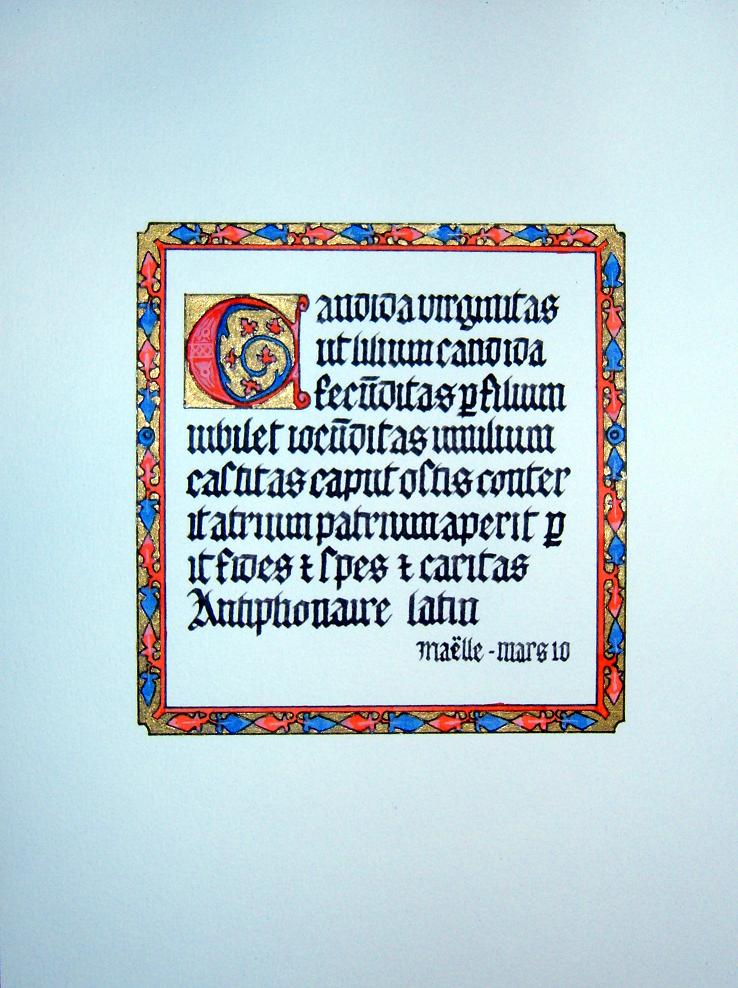 Candida virginitas
ut lilium candida
fecūditas ꝑ filium
iubilet iocūditas inuilium
caſtitas caput oſtis conter
it atrium patrium aperit ꝑ
it fides ⁊ ſpes ⁊ caritas
Antiphonaire latin
maëlle - mars 10